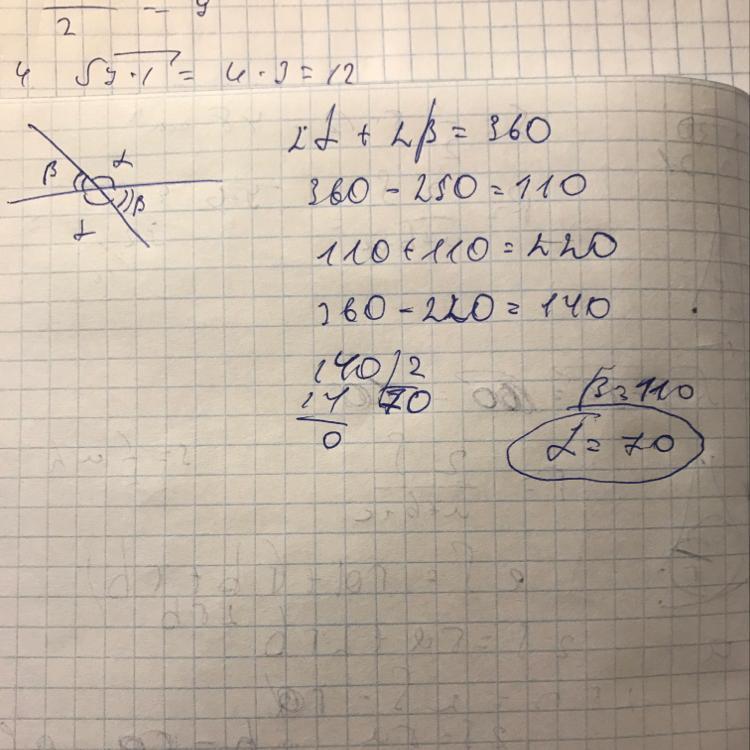 2 = 9
4 √9·1 = 4·3 = 12
β α
α β
2α + 2β = 360
360 - 250 = 110
110 + 110 = 220
360 - 220 = 140
140 / 2
14 70
0
β = 110
α = 70